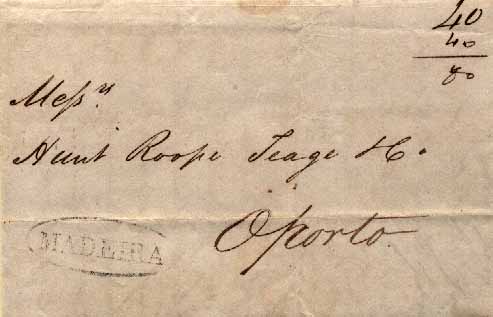 40
40
80
Messrs.
Hunt Roope Teage & Co.
Oporto
MADEIRA